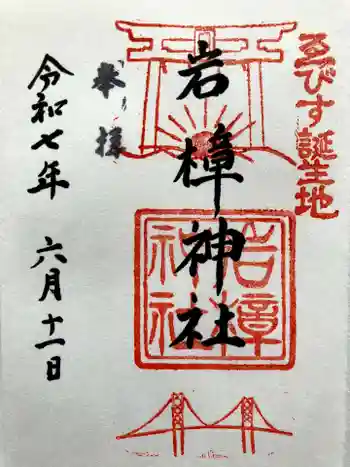 ゑびす誕生地
岩樟神社
岩樟神社
奉拝
令和七年 六月十一日